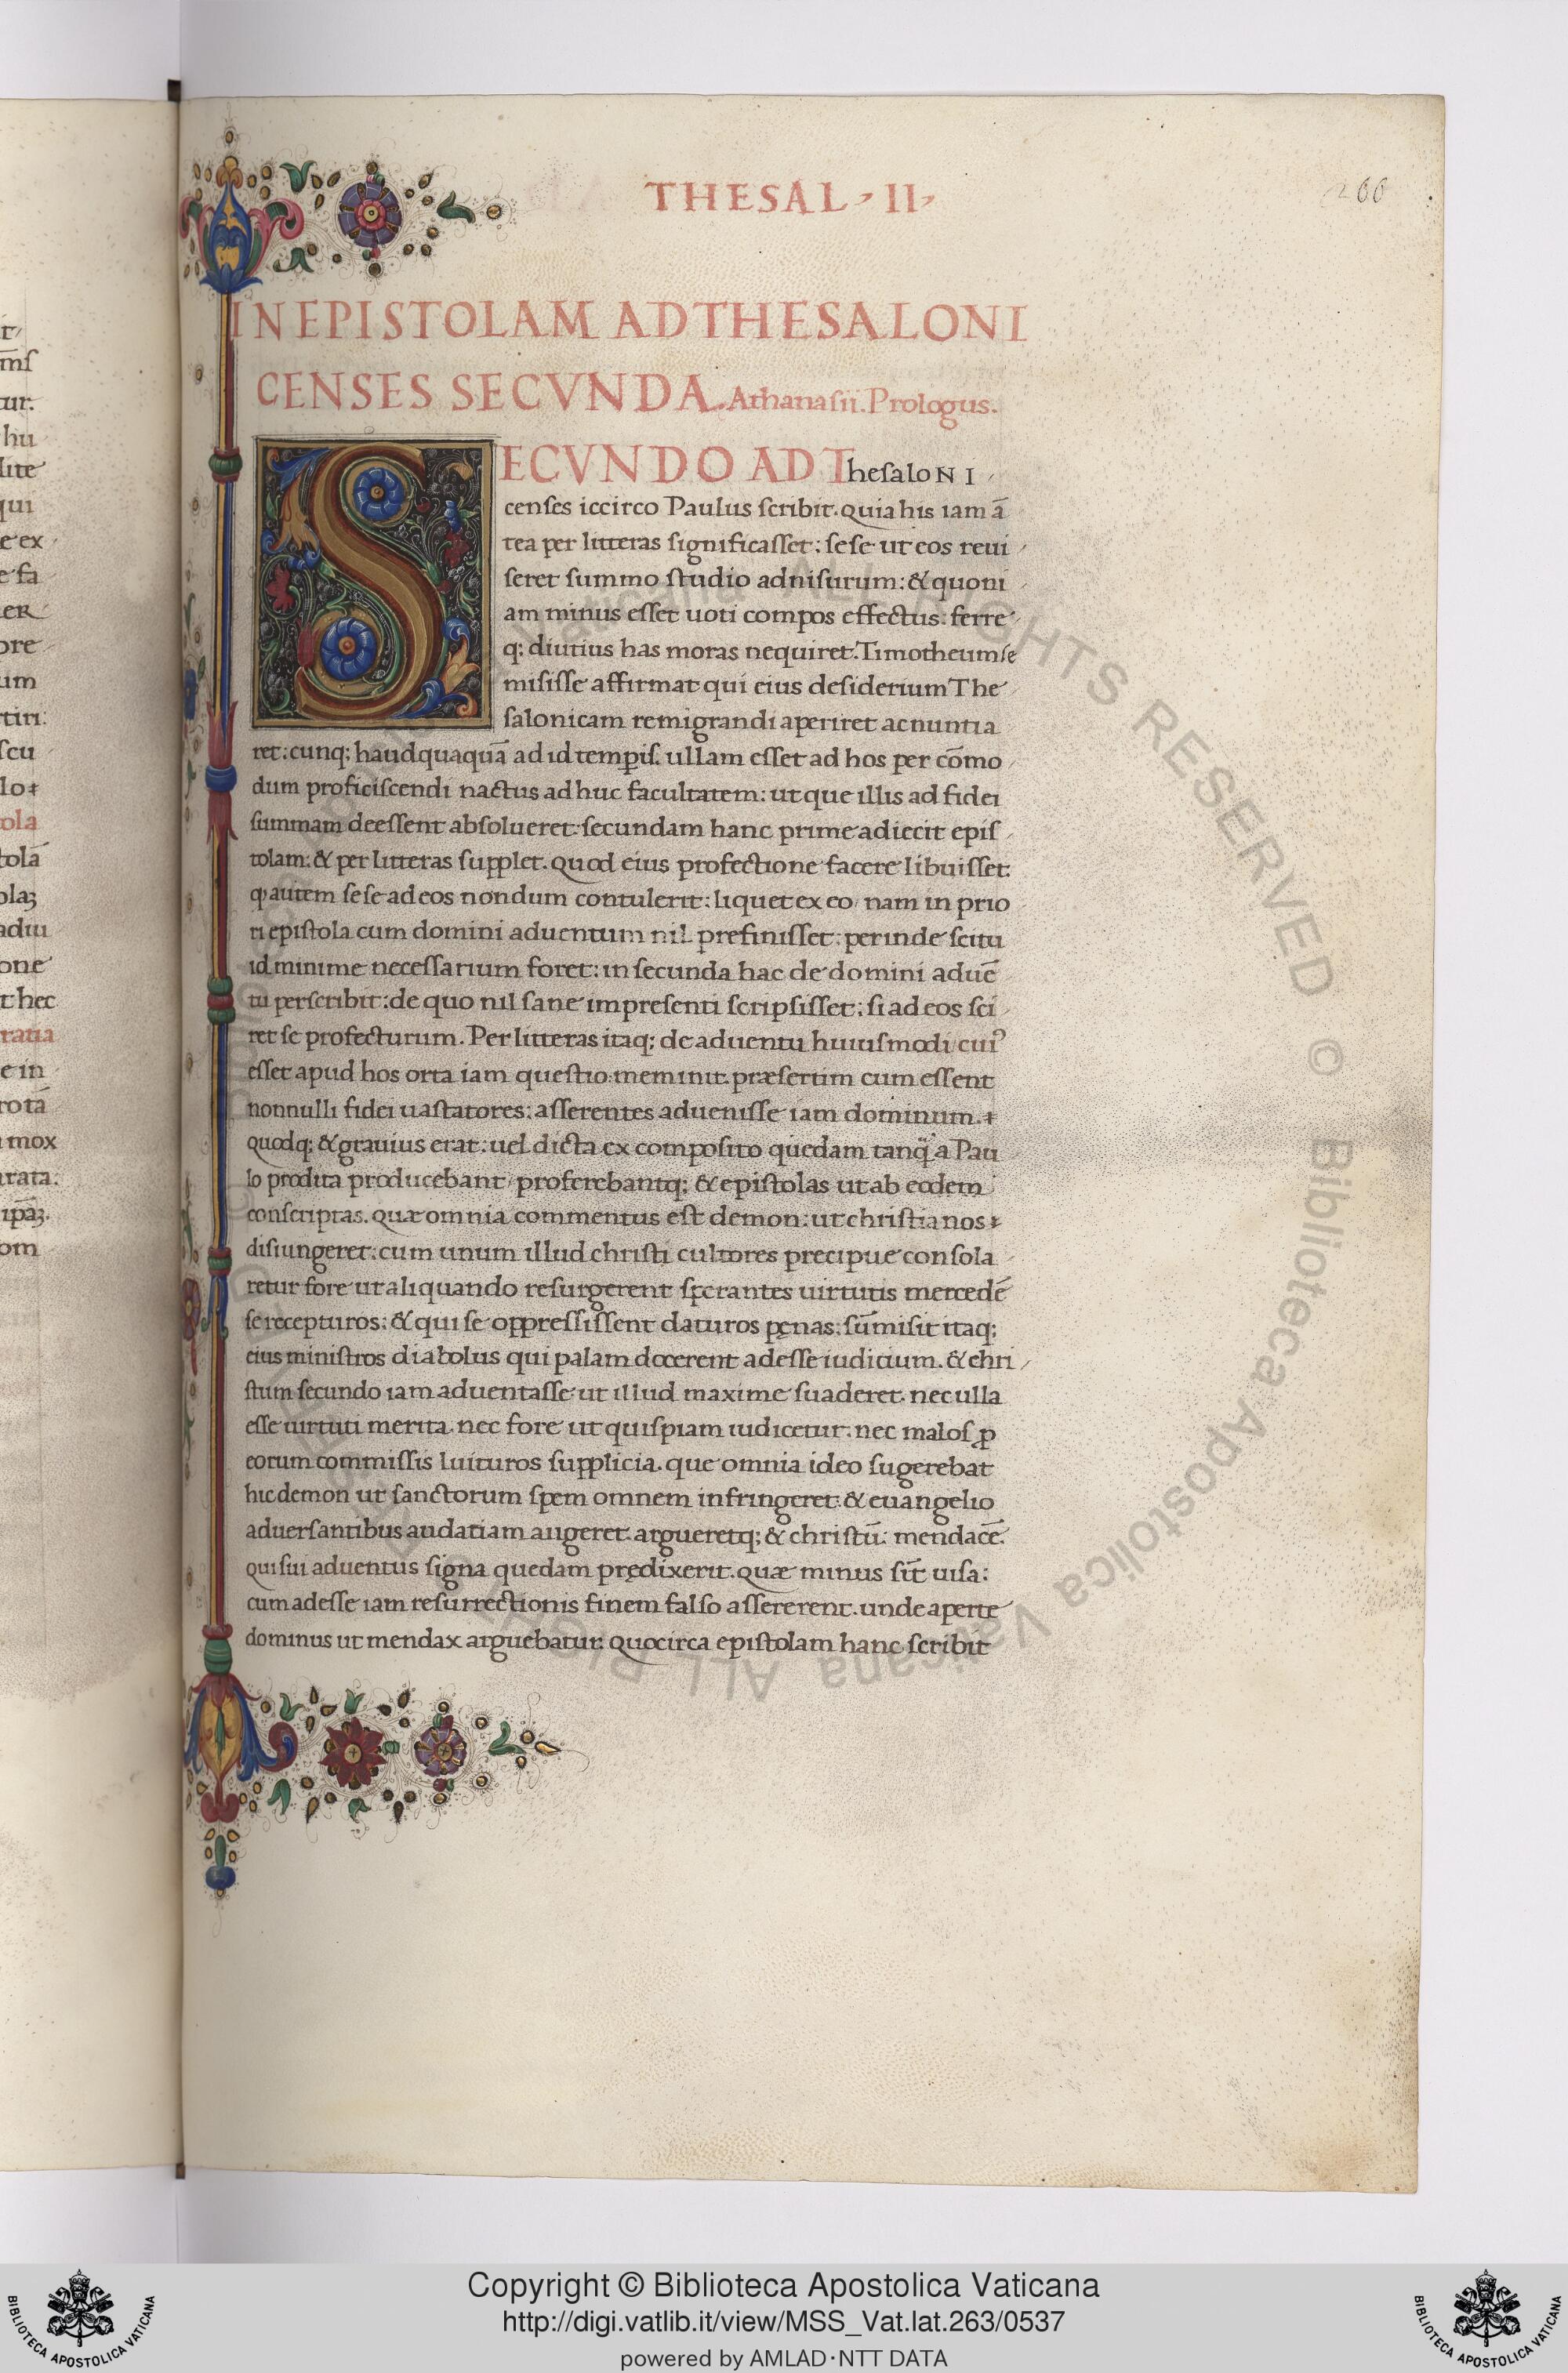 THESAL · II ·
266
IN EPISTOLAM AD THESALONI
CENSES SECVNDA. Athanasii. Prologus.
SECVNDO AD ThesaloNI
censes iccirco Paulus scribit. quia his iam ā
tea per litteras significasset: sese ut eos reui
seret summo studio adnisurum: & quoni
am minus esset uoti compos effectus: ferre
q; diutius has moras nequiret. Timotheum se
misisse affirmat qui eius desiderium The
salonicam remigrandi aperiret ac nuntia
ret: cunq; haudquaquā ad id temp̱is. ullam esset ad hos per cōmo
dum proficiscendi nactus ad huc facultatem: ut que illis ad fidei
summam deessent absolueret: secundam hanc prime adiecit epis
tolam: & per litteras supplet. quod eius profectione facere libuisset:
ꝙ autem sese ad eos nondum contulerit: liquet ex eo. nam in prio
ri epistola cum domini aduentum nil prefinisset: perinde scitu
id minime necessarium foret: in secunda hac de domini aduē
tu perscribit: de quo nil sane impresenti scripsisset: si ad eos sci
ret se profecturum. Per litteras itaq; de aduentu huiusmodi cuiꝰ
esset apud hos orta iam questio meminit. præsertim cum essent
nonnulli fidei uastatores: asserentes aduenisse iam dominum. &
quodq; & grauius erat: uel dicta ex composito quedam tanq̃ a Pau
lo prodita producebant proferebantq; & epistolas ut ab eodem
conscriptas. quæ omnia commentus est demon: ut christianos
disiungeret: cum unum illud christi cultores precipue consola
retur fore ut aliquando resurgerent sperantes uirtutis mercedē
se recepturos: & qui se oppressissent daturos pęnas: sūmisit itaq;
eius ministros diabolus qui palam docerent adesse iudicium. & chri
stum secundo iam aduentasse ut illud maxime suaderet. nec ulla
esse uirtuti merita. nec fore ut quispiam iudicetur. nec malos ꝓ
eorum commissis luituros supplicia. que omnia ideo sugerebat
hic demon ut sanctorum spem omnem infringeret: & euangelio
aduersantibus audatiam augeret. argueretq; & christū: mendacē.
qui sui aduentus signa quedam prędixerit. quæ minus sīt uisa:
cum adesse iam resurrectionis finem falso assererent. unde aperte
dominus ut mendax arguebatur. quocirca epistolam hanc scribit
Copyright © Biblioteca Apostolica Vaticana
http://digi.vatlib.it/view/MSS_Vat.lat.263/0537
powered by AMLAD·NTT DATA